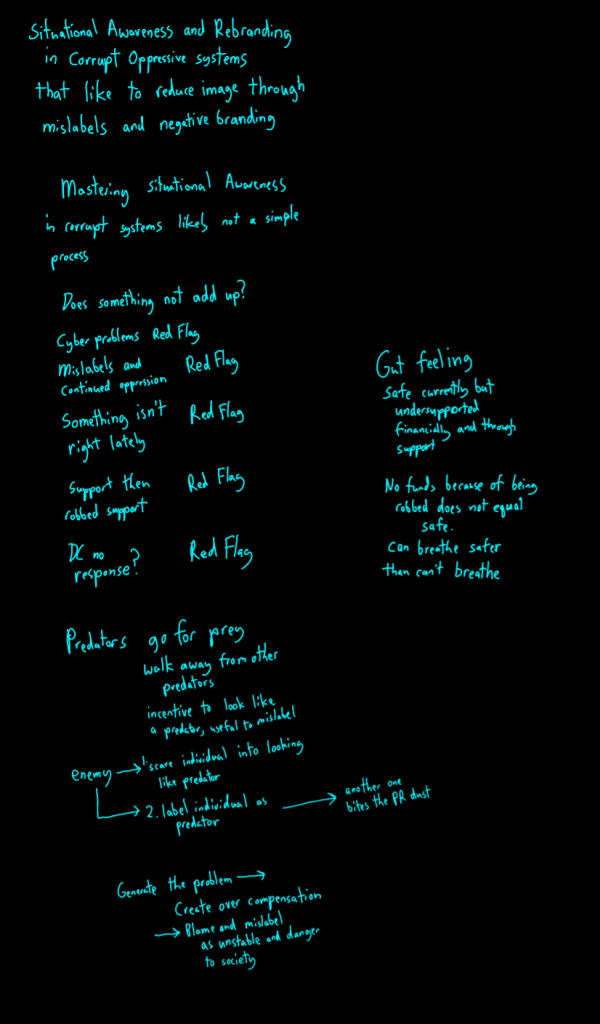 Situational Awareness and Rebranding
in Corrupt Oppressive systems
that like to reduce image through
mislabels and negative branding
Mastering situational Awareness
in corrupt systems likely not a simple
process
Does something not add up?
Cyber problems Red Flag
Mislabels and
continued oppression Red Flag
Something isn't
right lately Red Flag
Support then
robbed support Red Flag
DC no
response? Red Flag
Gut feeling
Safe currently but
undersupported
financially and through
support
No funds because of being
robbed does not equal
safe.
Can breathe safer
than can't breathe
Predators go for prey
walk away from other
predators
incentive to look like
a predator, useful to mislabel
enemy → 1. scare individual into looking
like predator
→ 2. label individual as
predator
→ another one
bites the PR dust
Generate the problem →
Create over compensation
→ Blame and mislabel
as unstable and danger
to society